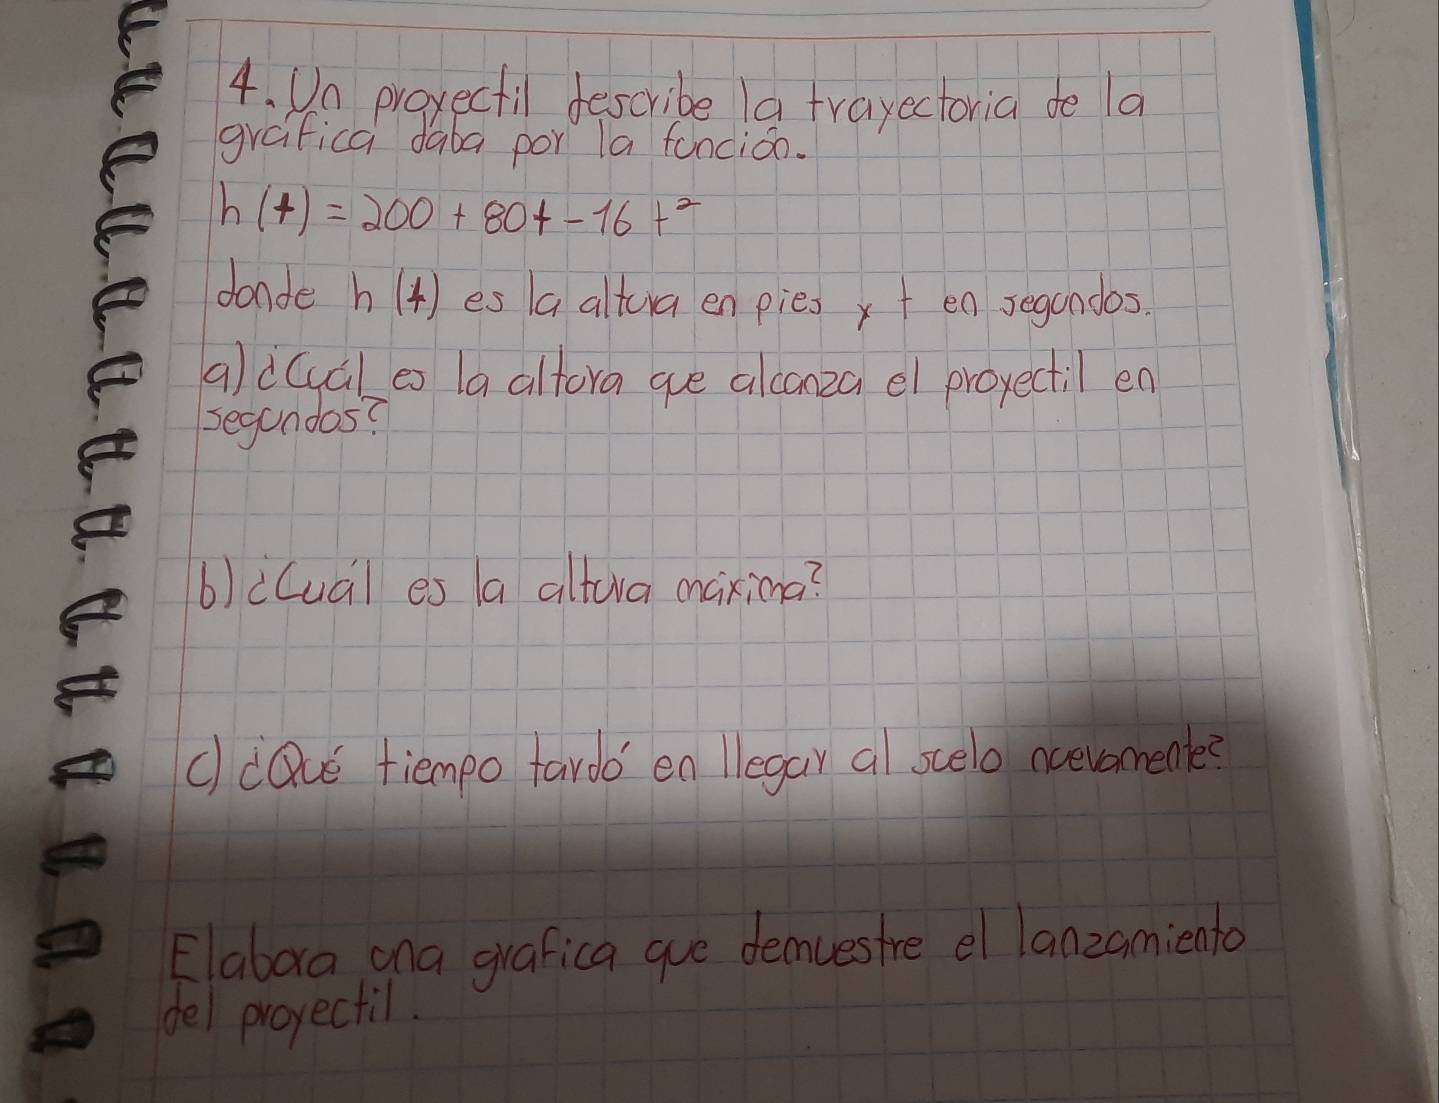 4. Un proyectil describe la trayectoria de la
gráfica daba por la función.
h(t) = 200 + 80t - 16t²
donde h(t) es la altura en pies y t en segundos.
a) ¿Cuál es la altura que alcanza el proyectil en
segundos?
b) ¿Cuál es la altura máxima?
c) ¿Qué tiempo tardó en llegar al suelo nuevamente?
Elabora una grafica que demuestre el lanzamiento
del proyectil.